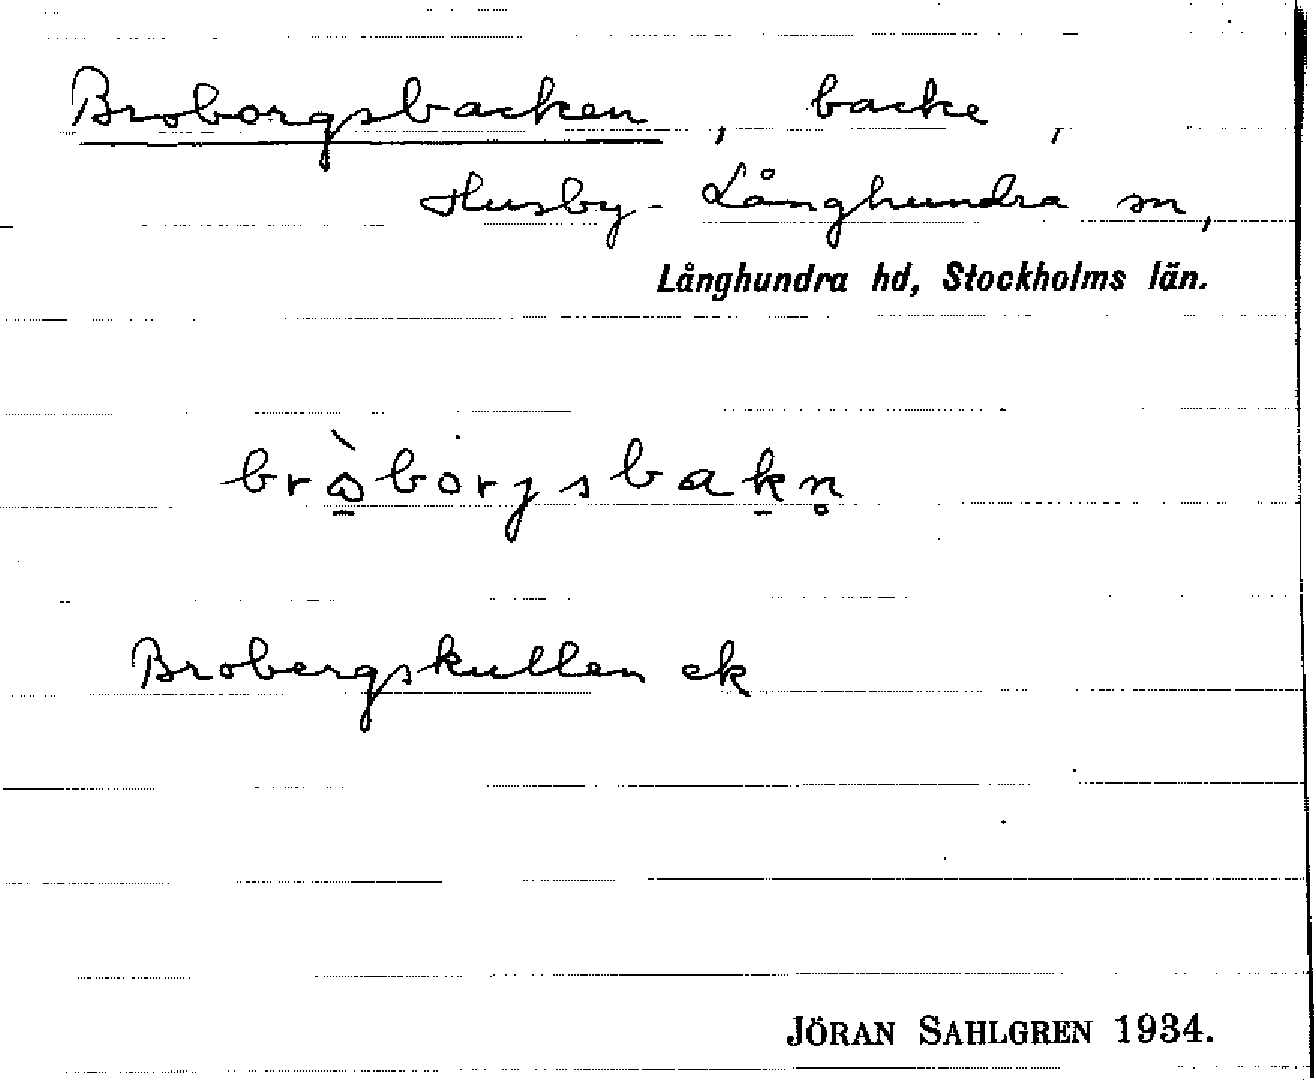 Broborgsbacken, backe,
Husby-Långhundra sn,
Långhundra hd, Stockholms län.
brò̱borjsbaḵn̥
Brobergskullen ek
JÖRAN SAHLGREN 1934.